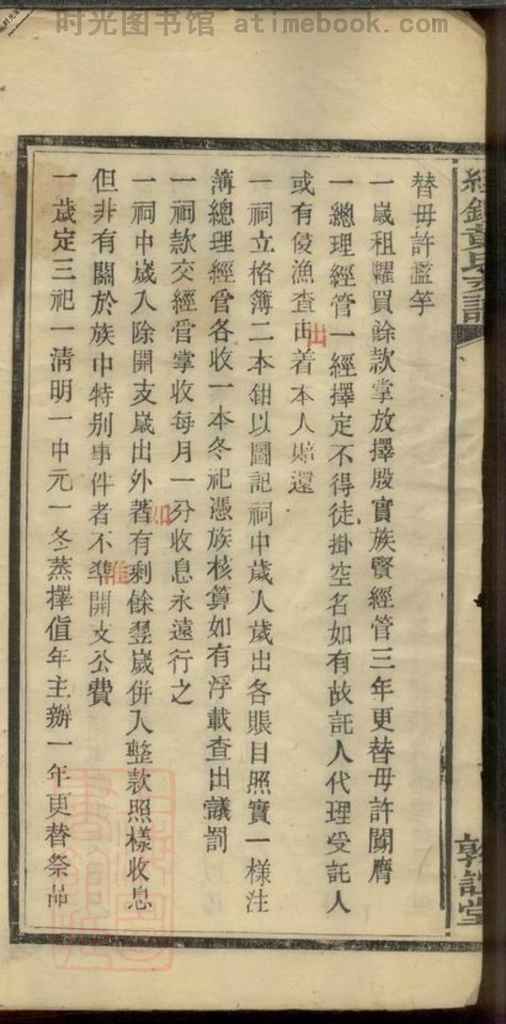 时光图书馆 atimebook.com
替毋許濫竽
一歲租糶買餘款掌放擇殷實族賢經管三年更替毋許闒膺
一總理經管一經擇定不得徒掛空名如有故託人代理受託人
或有侵漁查出着本人賠還
出
一祠立格簿二本鉗以圖記祠中歲人歲出各賬目照實一樣注
簿總理經管各收一本冬祀憑族核算如有浮載查出議罰
一祠款交經管掌收每月一分收息永遠行之
一祠中歲入除開支歲出外若有剩餘翌歲併入整款照樣收息
如
但非有關於族中特別事件者不準開支公費
准
一歲定三祀一清明一中元一冬蒸擇值年主辦一年更替祭品
敦誼堂